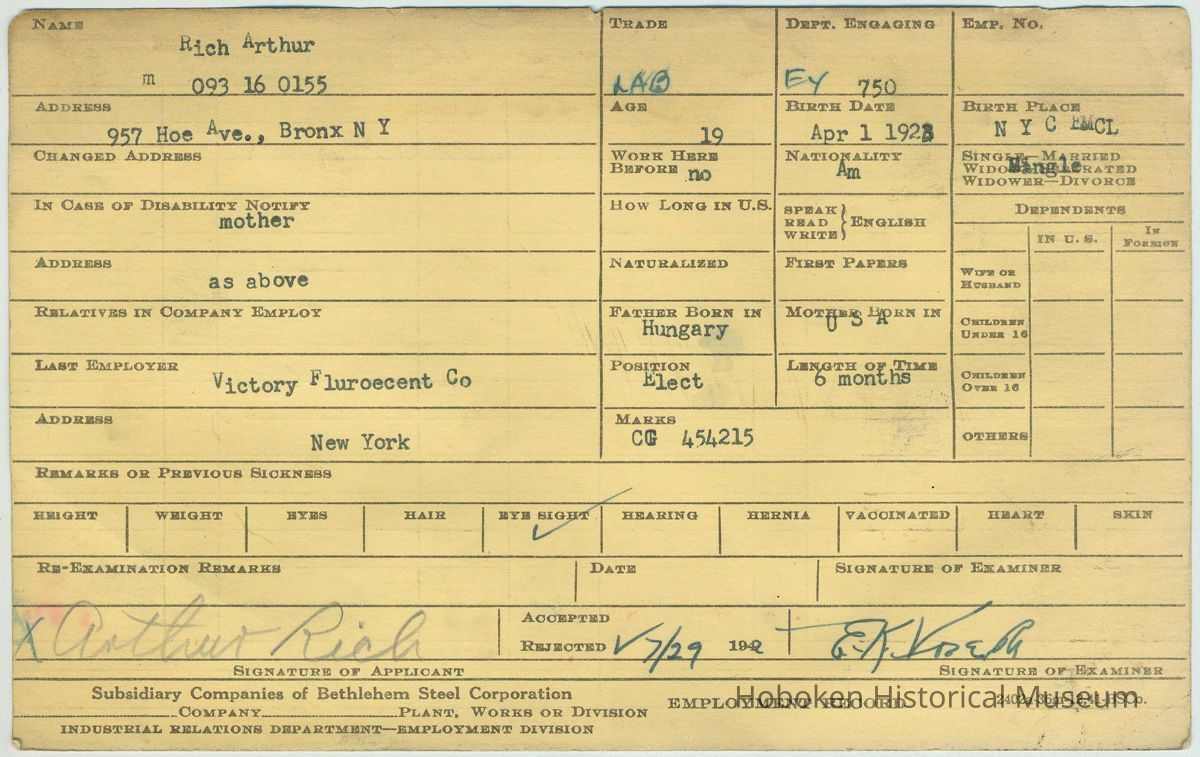 NAME
Rich Arthur
m 093 16 0155
TRADE
LAB
DEPT. ENGAGING
EY 750
EMP. NO.
ADDRESS
957 Hoe Ave., Bronx N Y
AGE
19
BIRTH DATE
Apr 1 1923
BIRTH PLACE
N Y C EMCL
CHANGED ADDRESS
WORK HERE
BEFORE no
NATIONALITY
Am
SINGLE—MARRIED
WIDOW—SEPARATED
WIDOWER—DIVORCE
IN CASE OF DISABILITY NOTIFY
mother
HOW LONG IN U.S.
SPEAK
READ
WRITE
ENGLISH
DEPENDENTS
IN U. S.
IN FOREIGN
ADDRESS
as above
NATURALIZED
FIRST PAPERS
WIFE OR
HUSBAND
RELATIVES IN COMPANY EMPLOY
FATHER BORN IN
Hungary
MOTHER BORN IN
U S A
CHILDREN
UNDER 16
LAST EMPLOYER
Victory Fluroecent Co
POSITION
Elect
LENGTH OF TIME
6 months
CHILDREN
OVER 16
ADDRESS
New York
MARKS
CG 454215
OTHERS
REMARKS OR PREVIOUS SICKNESS
HEIGHT WEIGHT EYES HAIR EYE SIGHT HEARING HERNIA VACCINATED HEART SKIN
RE-EXAMINATION REMARKS
DATE
SIGNATURE OF EXAMINER
X Arthur Rich
SIGNATURE OF APPLICANT
ACCEPTED
REJECTED 7/29 1942
SIGNATURE OF EXAMINER
Subsidiary Companies of Bethlehem Steel Corporation
COMPANY PLANT, WORKS OR DIVISION
INDUSTRIAL RELATIONS DEPARTMENT—EMPLOYMENT DIVISION
EMPLOYMENT RECORD
Hoboken Historical Museum